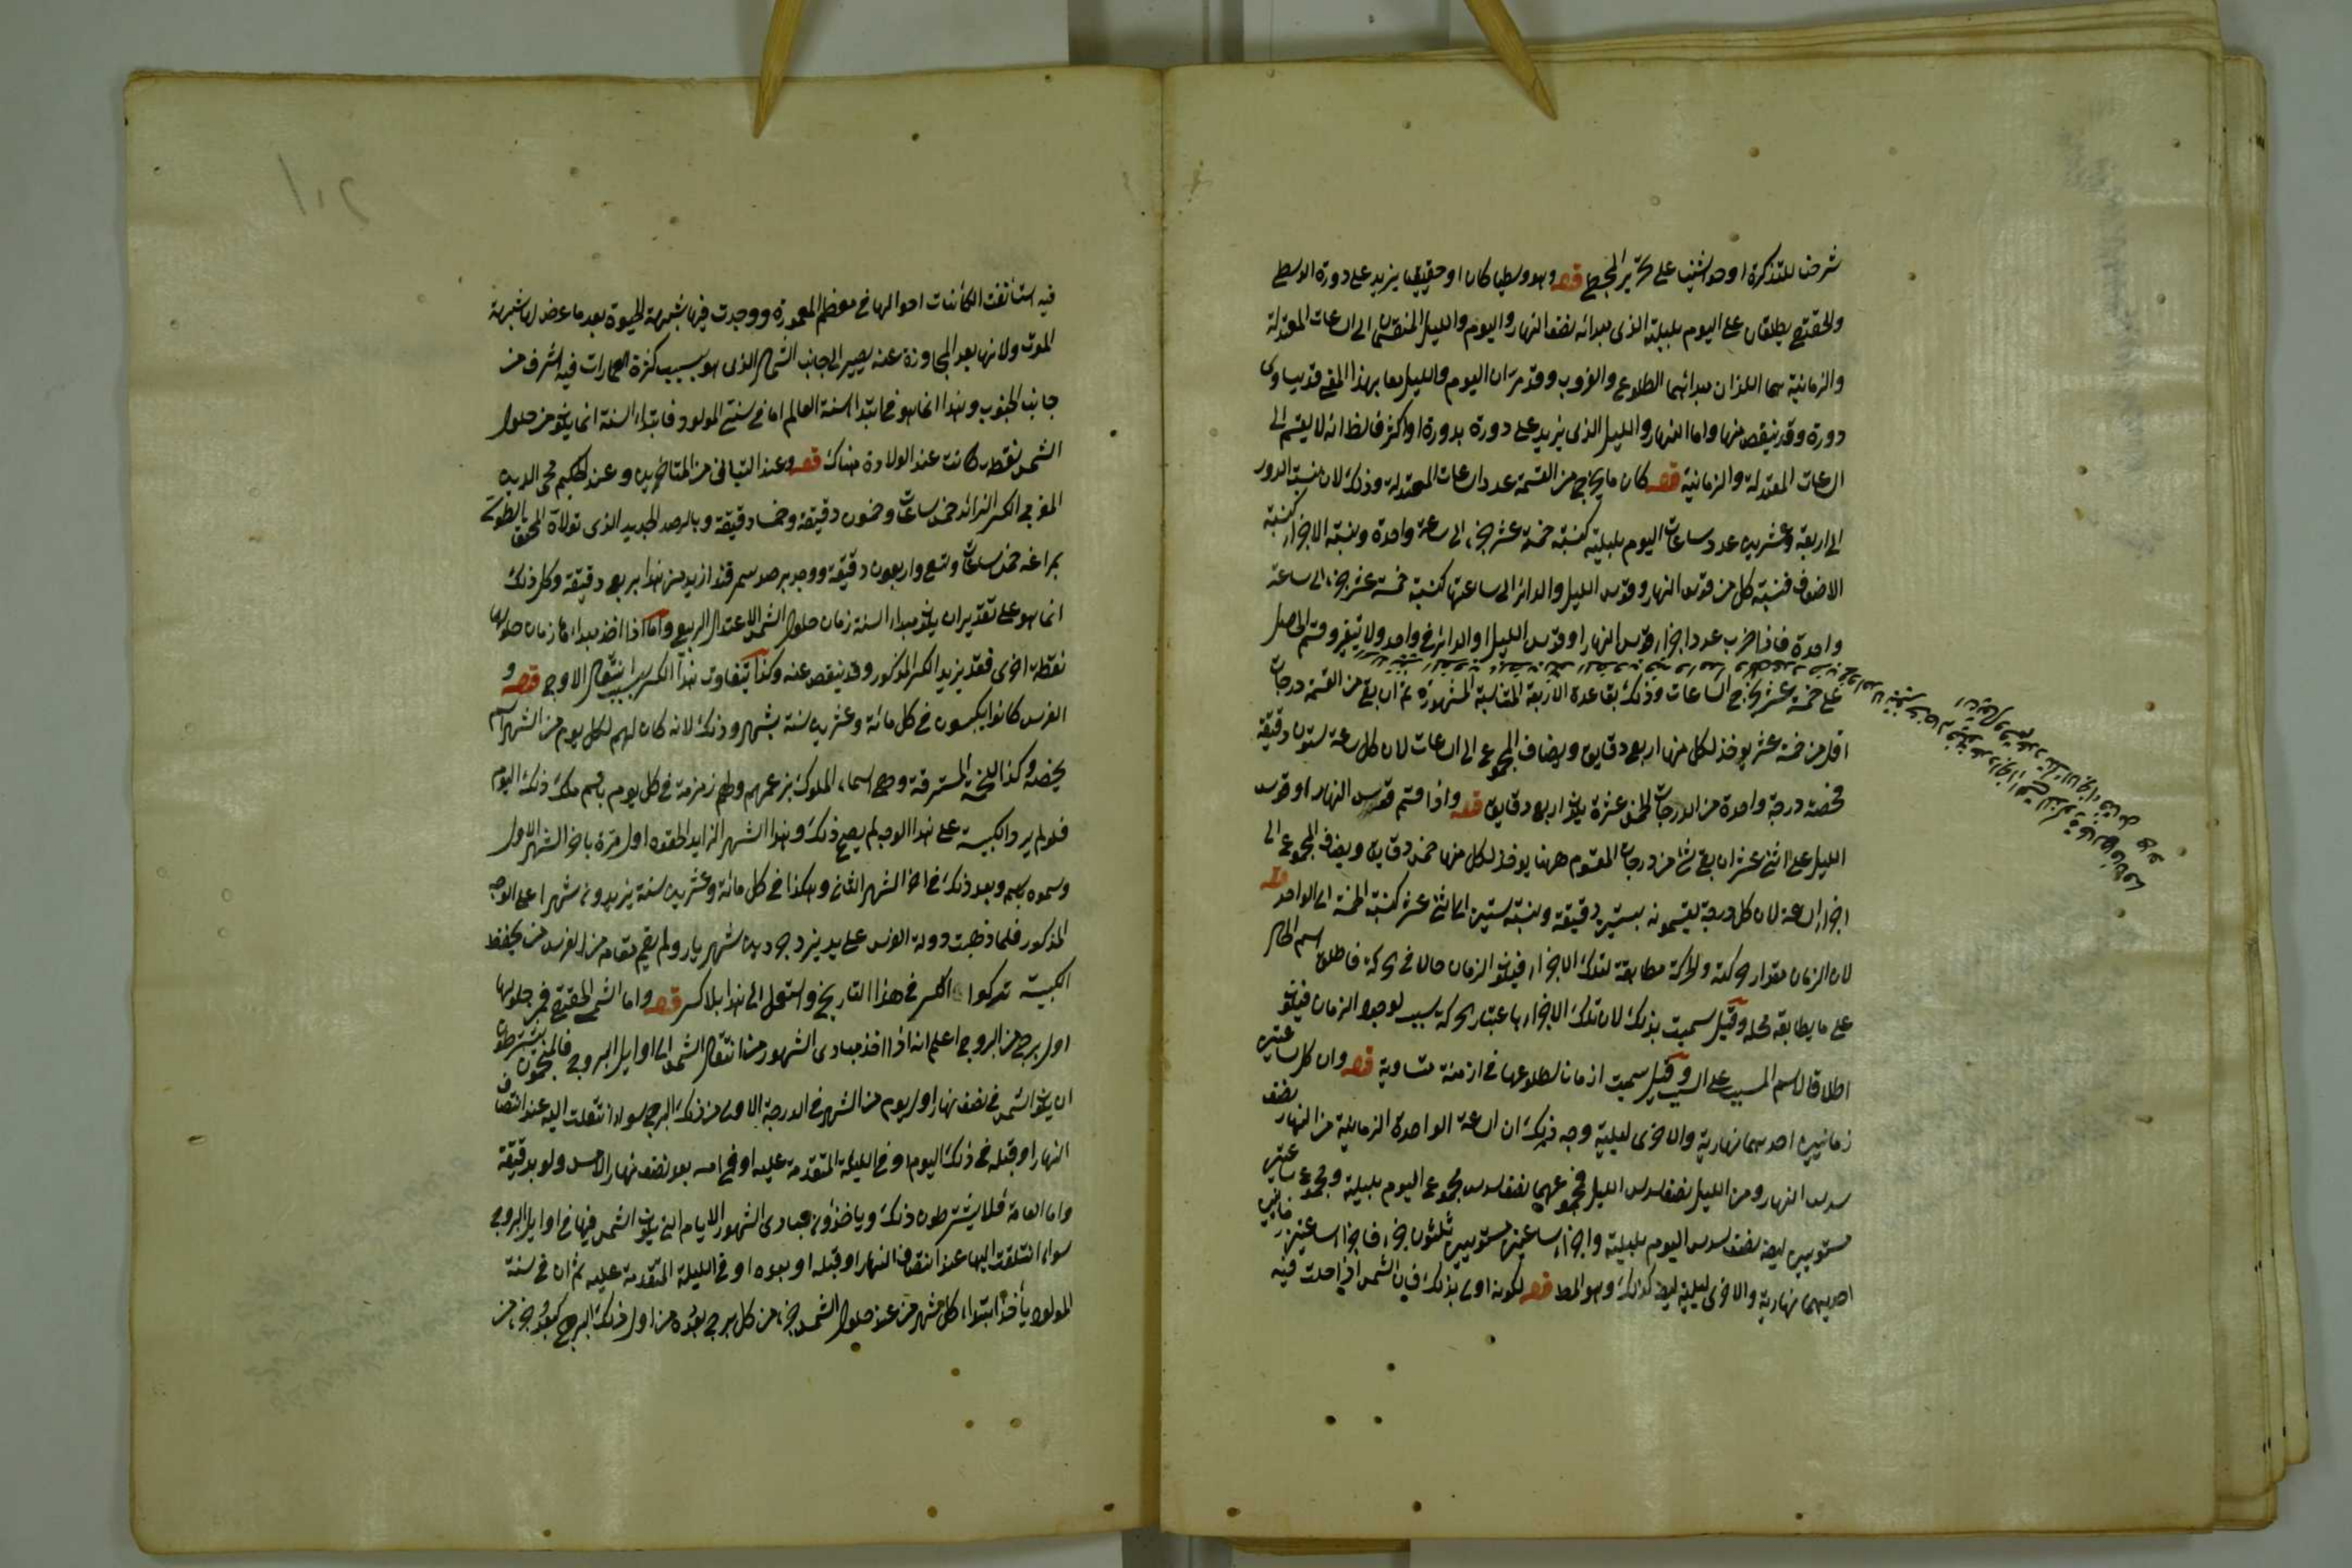 شرحنا للتذكرة او حواشينا على تحرير المجسطي قوله وهو وسطيا كان او حقيقيا يزيد على دورة الوسطي
والحقيقي يطلقان على اليوم بليلته الذى مبدائه نصف النهار واليوم والليل المنقسمان الى الساعات المعتدلة
والزمانية هما اللذان مبدائهما الطلوع والغروب وقد مر ان اليوم والليل معا بهذا المعنى قد يساوى
دورة وقد ينقص منها واما النهار والليل الذى يزيد على دورة بدورة او اكثر فالظ انه لا يقسم الى
الساعات المعتدلة والزمانية قوله كان ما يخرج من القسمة عدد الساعات المعتدلة وذلك لان نسبة الدور
الى اربعة وعشرين عدد ساعات اليوم بليلته كنسبة خمسة عشر جزء الى ساعة واحدة ونسبة الاجزاء كنسبة
الاضعاف فنسبة كل من قوس النهار وقوس الليل والدائر الى ساعتها كنسبة خمسة عشر جزء الى ساعة
واحدة فاذا ضرب عدد اجزاء قوس النهار او قوس الليل او الدائر فى واحد ولا يتغير وقسم الحاصل
على خمسة عشر يخرج الساعات وذلك بقاعدة الاربعة المتناسبة المشهورة ثم ان بقى من القسمة درجات
اقل من خمسة عشر يوخذ لكل منها اربع دقايق ويضاف المجموع الى الساعات لان كل ساعة ستون دقيقة
فحصة درجة واحدة من الدرجات الخمس عشرة يكون اربع دقايق قوله واذا قسم قوس النهار او قوس
الليل على اثنى عشر ان بقى شئ من درجات المقسوم ههنا يوخذ لكل منها خمس دقايق ويضاف المجموع الى
اجزاء الساعة لان كل درجة يقسمونه بستين دقيقة ونسبة ستين الى اثنى عشر كنسبة الخمسة الى الواحد قوله
لان الزمان مقدار حركته والحركة مطابقة لتلك الاجزاء فيكون الزمان حالا فى الحركة فاطلق اسم الحال
على ما يطابقه محله وقيل سميت بذلك لان تلك الاجزاء باعتبار الحركة سبب لوجود الزمان فيكون
اطلاقا لاسم المسبب على السبب وقيل سميت ازمانا لطلوعها فى ازمنة متساوية قوله وان كل ساعتين
زمانيتين احديهما نهارية والاخرى ليلية وجه ذلك ان الساعة الواحدة الزمانية من النهار نصف
سدس النهار ومن الليل نصف سدس الليل فمجموعهما نصف سدس مجموع اليوم بليلته ومجموع ساعتين
مستويتين ايضا نصف سدس اليوم بليلته واجزاء ساعتين مستويتين ثلثون جزء فاجزاء ساعتين زمانيتين
احديهما نهارية والاخرى ليلية ايضا كذلك وهو المط قوله لكونه اولى بذلك فان الشمس اذا حلت فيه
فيه استأنفت الكائنات احوالها فى معظم المعمورة ووجدت فيها شبهة الحيوة بعد ما عرض لها شبهة
الموت ولانها بعد المجاوزة عنه يصير الى جانب الشمال الذى هو بسبب كثرة العمارات فيه اشرف من
جانب الجنوب وهذا انما هو فى ابتداء سنة العالم اما فى سنتى المولود فابتداء السنة انما يكون من حلول
الشمس نقطة كانت عند الولادة هناك قوله وعند التبانى من المتاخرين وعند الحكيم محى الدين
المغربى الكسر الزائد خمس ساعات وخمسون دقيقة وخمسا دقيقة وبالرصد الجديد الذى تولاه المحقق الطوسى
بمراغه خمس ساعات وتسع واربعون دقيقة ووجد برصد سمرقند ازيد من هذا بربع دقيقة وكل ذلك
انما هو على تقدير ان يكون مبداء السنة زمان حلول الشمس الاعتدال الربيعى واما اذا اخذ مبداءها زمان حلولها
نقطة اخرى فقد يزيد الكسر المذكور وقد ينقص عنه وكذا يتفاوت هذا الكسر بسبب انتقال الاوج قوله و
الفرس كانوا يكبسون فى كل مائة وعشرين سنة بشهر وذلك لانه كان لهم لكل يوم من الشهر اسم
يخصه وكذا للخمسة المسترقة وهى اسماء الملوك بزعمهم ولهم زمزمة فى كل يوم باسم ملك ذلك اليوم
فلو لم يرد الكبيسة على هذا الوجه لم يصح ذلك وهذا الشهر الزايد الحقوه اول مرة باخر الشهر الاول
وسموه باسمه وبعد ذلك فى اخر الشهر الثانى وهكذا فى كل مائة وعشرين سنة يزيدون شهرا على الوجه
المذكور فلما ذهبت دولة الفرس على يد يزدجرد بن شهريار ولم يقم مقامه من الفرس من يحفظ
الكبيسة تركوا الكسر فى هذا التاريخ واستعمل الى هذا بلا كسر قوله واما الشمسى الحقيقى فمن حلولها
اول برج من البروج اعلم انه اذا اخذ مبادى الشهور من انتقال الشمس الى اوايل البروج فالمنجمون يشترطون
ان يكون الشمس فى نصف نهار اول يوم من الشهر فى الدرجة الاولى من ذلك البرج سواء انتقلت اليه عند انتصاف
النهار او قبله فى ذلك اليوم او فى الليلة المتقدمة عليه او فى امسه بعد نصف نهار الامس ولو بدقيقة
واما العامة فلا يشترطون ذلك وياخذون مبادى الشهور الايام التى يكون الشمس فيها فى اوايل البروج
سواء انتقلت اليها عند انتصاف النهار او قبله او بعده او فى الليلة المتقدمة عليه ثم ان فى سنة
المولود يأخذ ابتداء كل شهر من عند حلول الشمس جزء من كل برج بعده من اول ذلك البرج كبعد جزء من